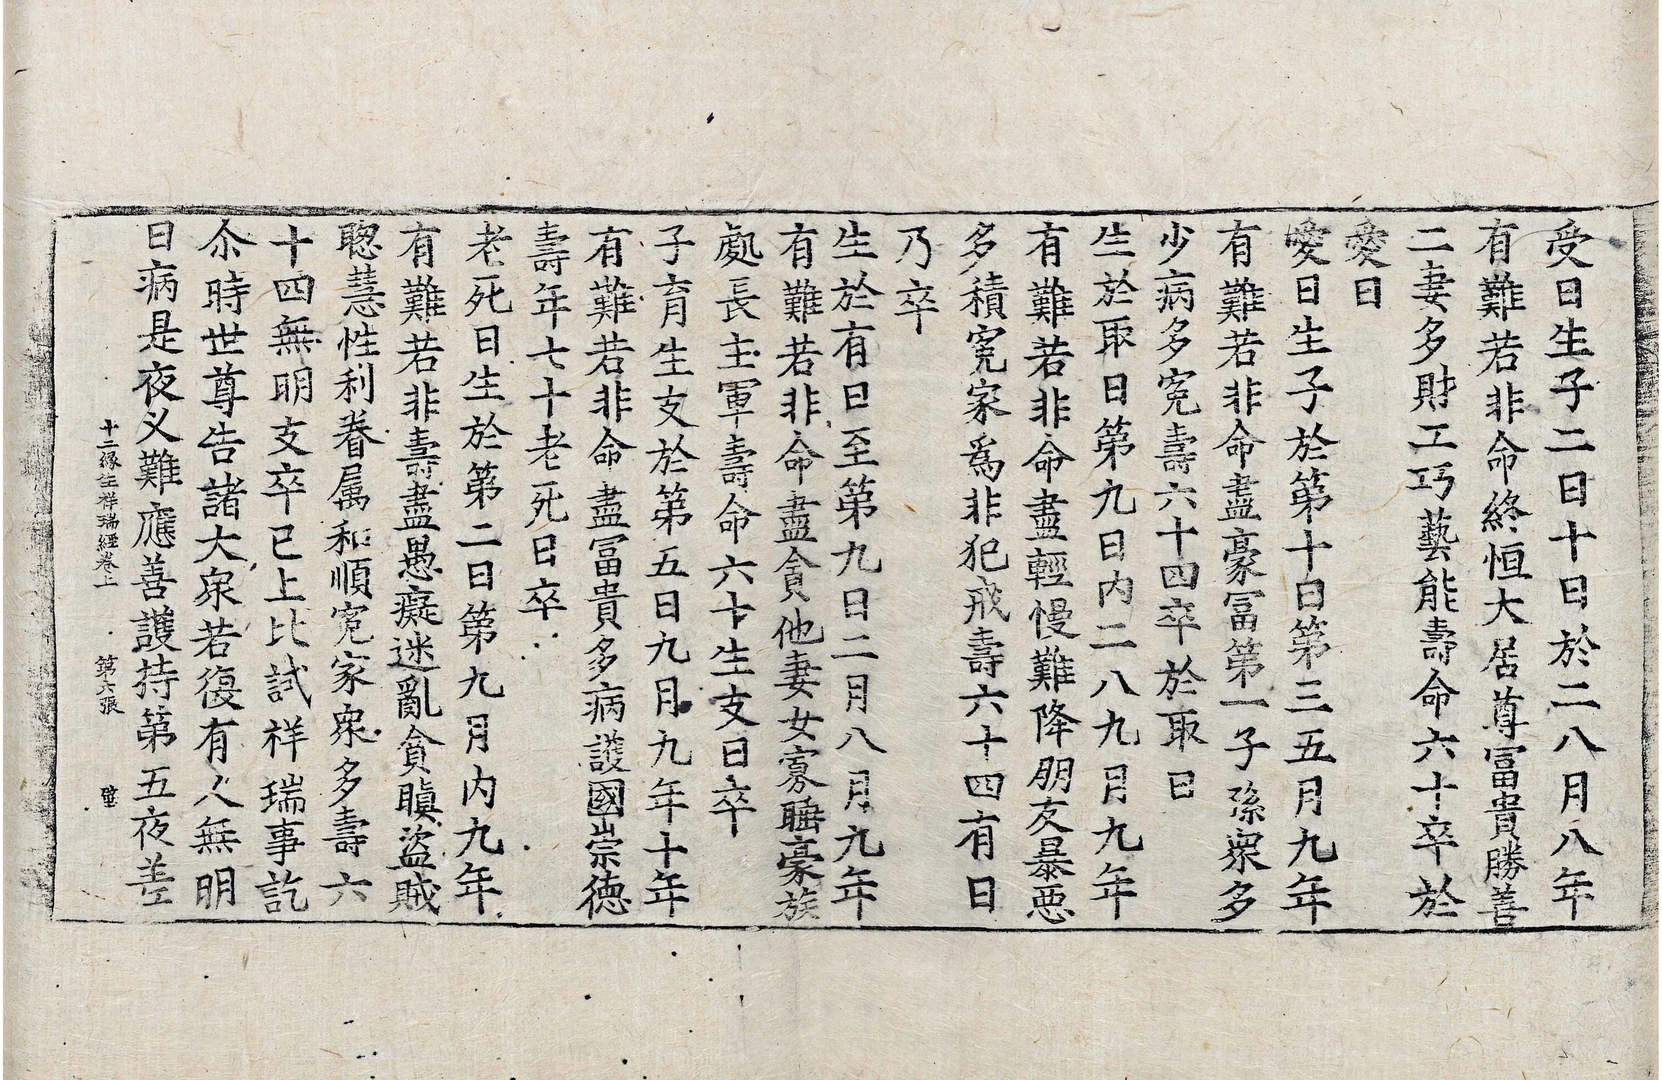 受日生子二日十日於二八月八年
有難若非命終恒大居尊冨貴勝善
二妻多財工巧藝能壽命六十卒於
愛日
愛日生子於第十白第三五月九年
有難若非命盡豪冨第一子孫衆多
少病多寃壽六十四卒於取日
生於取日第九日内二八九月九年
有難若非命盡輕慢難降朋友暴惡
多積寃家爲非犯戒壽六十四有日
乃卒
生於有日至第九日二月八月九年
有難若非命盡貪他妻女寡睡豪族
處長主軍壽命六十生支日卒
子育生支於第五日九月九年十年
有難若非命盡冨貴多病護國崇德
壽年七十老死日卒
老死日生於第二日第九月内九年
有難若非壽盡愚癡迷亂貪瞋盜賊
聦慧性利眷属和順寃家衆多壽六
十四無明支卒已上比試祥瑞事訖
尒時世尊告諸大衆若復有人無明
日病是夜义難應善護持第五夜善
十二縁生祥瑞經卷上 第六張 璧